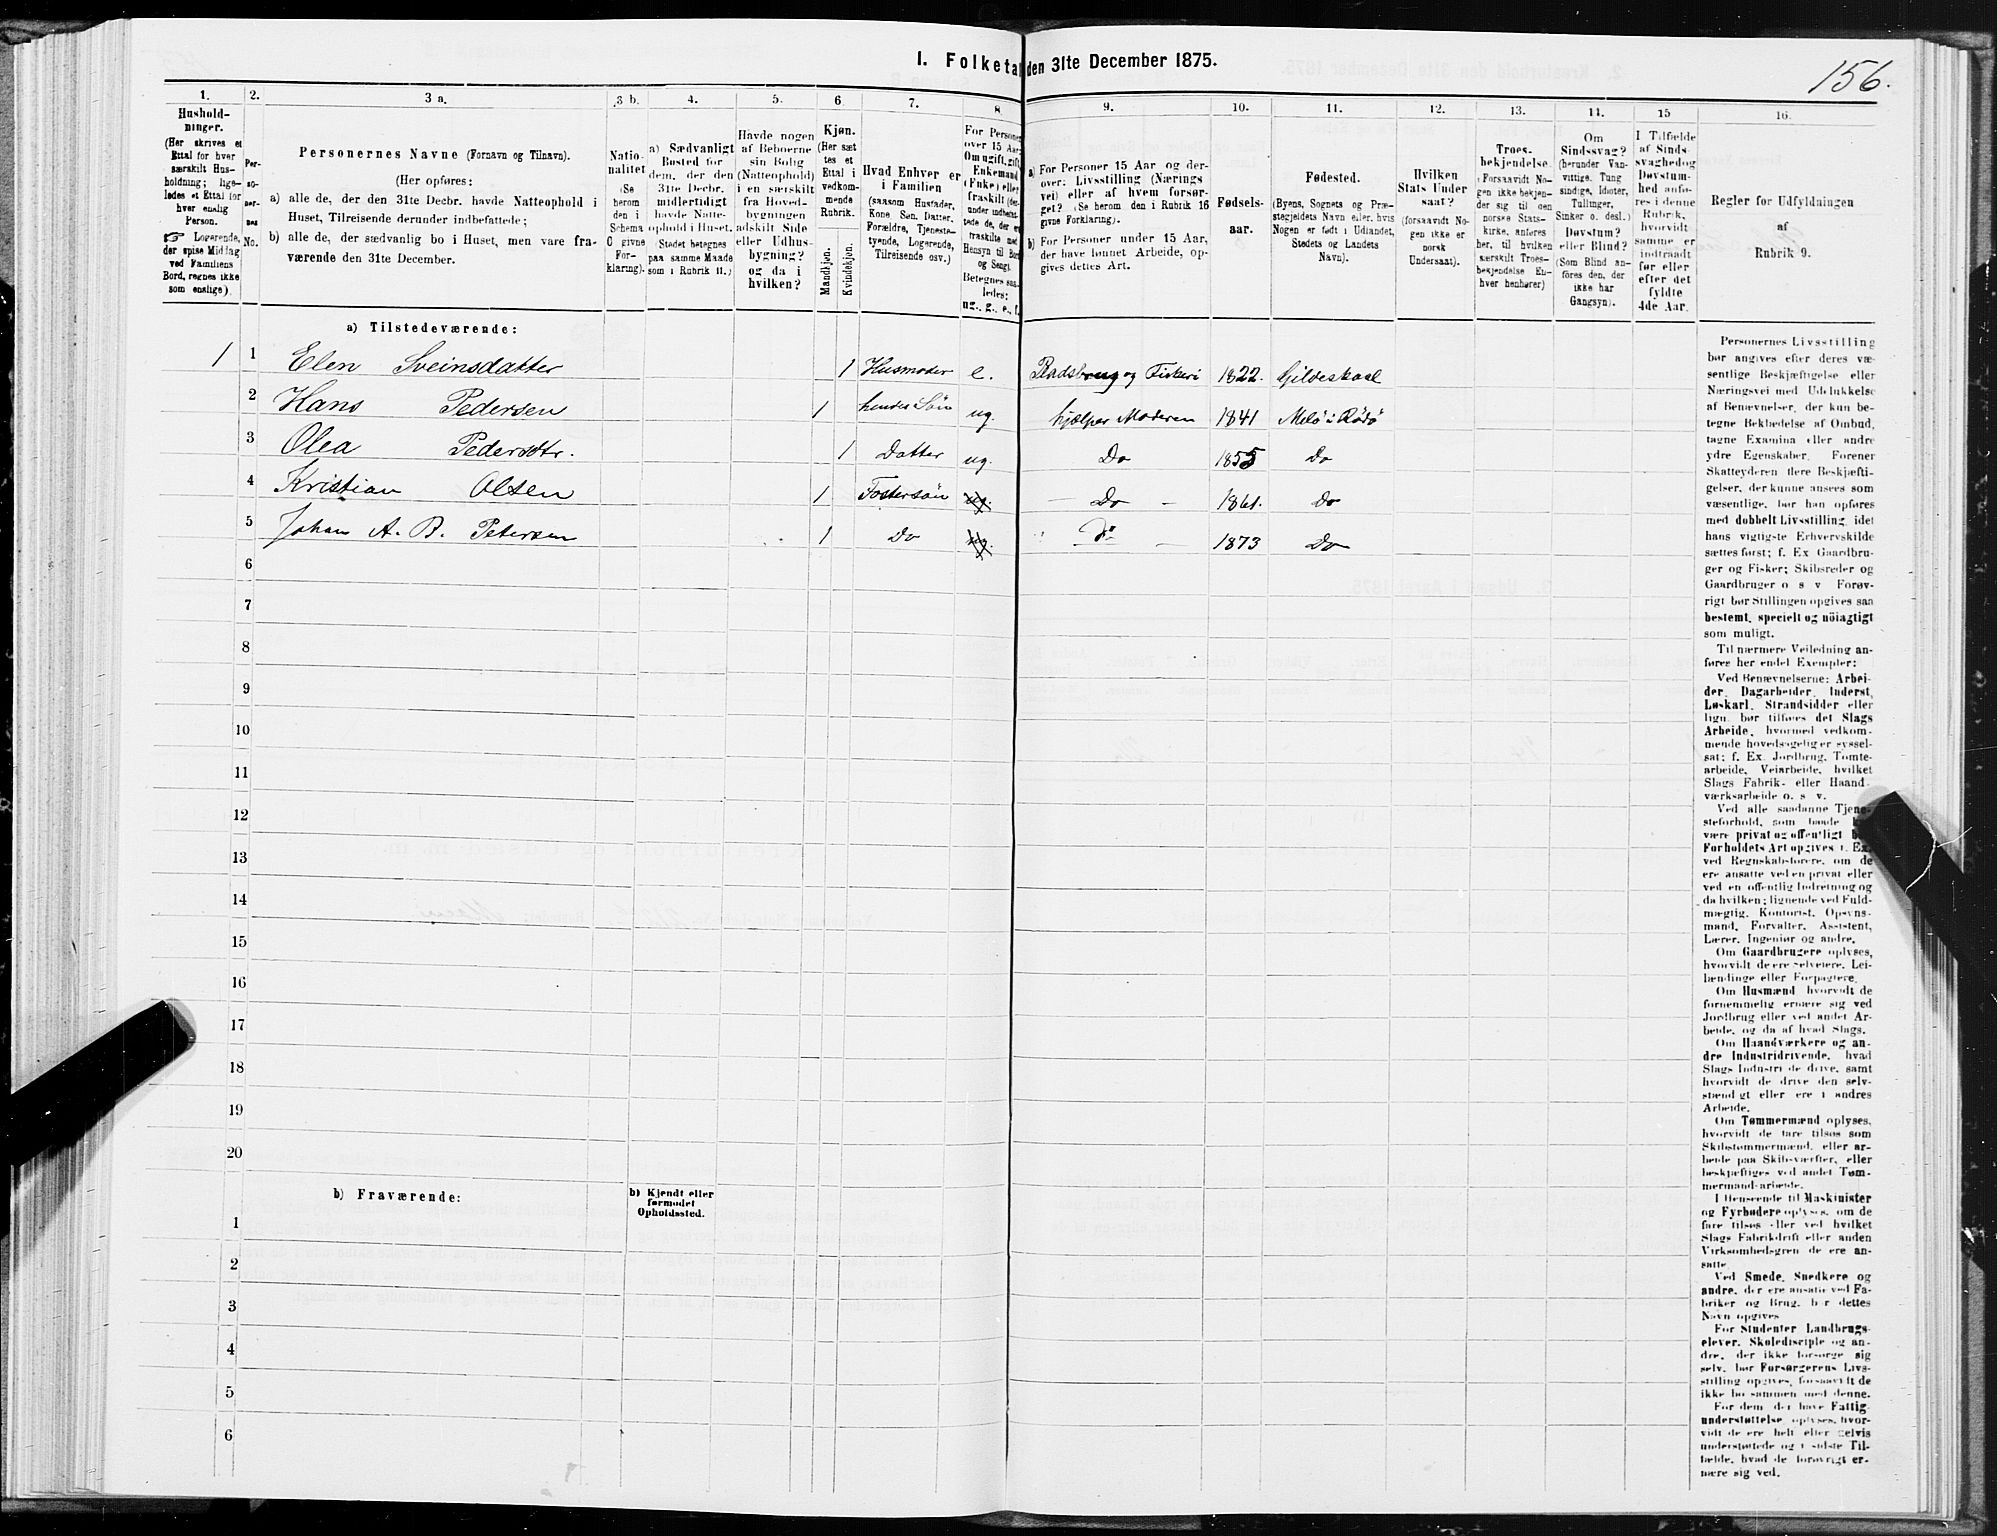 1. Folketal den 31te December 1875.
156.
1.
2.
3 a.
3 b.
4.
5.
6
7.
8.
9.
10.
11.
12.
13.
14.
15
16.
Hushold-
ninger.
(Her skrives et
Ettal for hver
særskilt Hus-
holdning; lige-
ledes et Ettal for
hver enslig
Person.
☞ Logerende,
der spise Middag
ved Familiens
Bord, regnes ikke
som enslige).
Per-
so-
ner-
nes
No.
Personernes Navne (Fornavn og Tilnavn).
(Her opføres:
a) alle de, der den 31te Decbr. havde Natteophold i
Huset, Tilreisende derunder indbefattede;
b) alle de, der sædvanlig bo i Huset, men vare fra-
værende den 31te December.
Natio-
nalitet
(Se
herom
den i
Schema
C givne
For-
klaring).
a) Sædvanligt
Bosted for
dem, der den
31te Decbr.
midlertidigt
havde Natte-
ophold i Huset.
(Stedet betegnes
paa samme Maade
som i Rubrik 11.)
Havde nogen
af Beboerne
sin Bolig
(Natteophold)
i en særskilt
fra Hoved-
bygningen
adskilt Side
eller Udhus-
bygning?
og da i
hvilken?
Kjøn.
(Her sæt
tes et
Ettal i
vedkom-
mende
Rubrik.
Mandkjøn.
Kvindekjøn.
Hvad Enhver er
i Familien
(saasom Husfader,
Kone, Søn, Datter,
Forældre, Tjeneste-
tyende, Logerende,
Tilreisende osv.)
For Personer
over 15 Aar:
Om ugift, gift,
Enkemand
(Enke) eller
fraskilt (der-
under indbefat-
tede de, der ere
fraskilte med
Hensyn til Bord
og Seng).
Betegnes saa-
ledes:
ug., g., e., f.
a) For Personer 15 Aar og der-
over: Livsstilling (Nærings
vei) eller af hvem forsør-
get? (Se herom den i Rubrik 16
givne Forklaring).
b) For Personer under 15 Aar,
der have lønnet Arbeide, op-
gives dettes Art.
Fødsels-
aar.
Fødested.
(Byens, Sognets og Præ-
stegjeldets Navn eller, hvis
Nogen er født i Udlandet,
Stedets og Landets
Navn).
Hvilken
Stats Under
saat?
(forsaavidt No-
gen ikke er
norsk
Undersaat).
Troes-
bekjendelse
(Forsaavidt No-
gen ikke bekjen-
der sig til den
norske Stats-
kirke, anføres
her, til hvilken
særskilt Troes-
bekjendelse En-
hver henhører)
Om
Sindssvag?
(herunder Van-
vittige, Tung
sindige, Idioter,
Tullinger,
Sinker o. desl.)
Døvstum?
eller Blind?
(Som Blind an-
føres den, der
ikke har
Gangsyn).
I Tilfælde
af Sinds-
svaghed og
Døvstum-
hed anfø-
res i denne
Rubrik,
hvorvidt
samme er
indtraadt
før eller
efter det
fyldte
4de Aar.
Regler for Udfyldningen
af
Rubrik 9.
a) Tilstedeværende:
1 1 Elen Sveinsdatter 1 Husmoder e. og Fiskeri 1822. Gildeskaal
2 Hans Pedersen 1 hendes Søn ug. hjælper Moderen 1841 Melö i Rödö
3 Olea Pedersdtr. 1 Datter ug. Do 1855 Do
4 Kristian Olsen 1 Fostersön ug. Do 1861. Do
5 Johan A. B. Petersen 1 Do ug. Do 1873 Do
6
7
8
9
10
11
12
13
14
15
16
17
18
19
20
b) Fraværende:
b) Kjendt eller
formodet
Opholdssted.
1
2
3
4
5
6
Personernes Livsstilling
bør angives efter deres væ-
sentlige Beskjæftigelse eller
Næringsvei med Udelukkelse
af Benævnelser, der kun be-
tegne Beklædelse af Ombud,
tagne Examina eller andre
ydre Egenskaber. Forener
Skatteyderen flere Beskjæfti-
gelser, der kunne ansees som
væsentlige, bør han opføres
med dobbelt Livsstilling, idet
hans vigtigste Erhvervskilde
sættes først; f. Ex Gaardbru-
ger og Fisker; Skibsreder og
Gaardbruger o s v Forøv-
rigt bør Stillingen opgives saa
bestemt, specielt og nöiagtigt
som muligt.
Til nærmere Veiledning an-
føres her endel Exempler:
Ved Benævnelserne: Arbei-
der, Dagarbeider, Inderst,
Løskarl, Strandsidder eller
lign. bør tilføies det Slags
Arbeide, hvormed vedkom-
mende hovedsagelig er syssel-
sat; f. Ex. Jordbrug, Tomte-
arbeide, Veiarbeide, hvilket
Slags Fabrik- eller Haand-
værksarbeide o. s v.
Ved alle saadanne Tjene-
steforhold, som baade
være privat og offentligt
Forholdets Art opgives f. Ex.
ved Regnskabsførere, om de
ere ansatte ved en privat eller
ved en offentlig Indretning og
da hvilken; lignende ved Fuld-
mægtig, Kontorist, Opsyns-
mand, Forvalter, Assistent,
Lærer, Ingeniør og andre.
Om Gaardbrugere oplyses,
hvorvidt de ere selveiere, Lei-
lændinge eller Forpagtere.
Om Husmænd hvorvidt de
fornemmelig ernære sig ved
Jordbrug eller ved andet Ar-
beide, og da af hvad Slags.
Om Haandværkere og an-
dre Industridrivende, hvad
Slags Industri de drive, samt
hvorvidt de drive den selv-
stændigt eller ere i andres
Arbeide.
Om Tømmermænd oplyses,
hvorvidt de fare tilsøs som
Skibstømmermænd, eller ar-
beide paa Skibsværfter, eller
beskjæftiges ved andet Tøm-
mermandsarbeide.
I Henseende til Maskinister
og Fyrbødere oplyses, om de
fare tilsøs eller ved hvilket
Slags Fabrikdrift eller anden
Virksomhedsgren de ere an-
satte
Ved Smede, Snedkere og
andre, der ere ansatte ved Fa-
briker og Brug, bør dettes
Navn opgives
For Studenter Landbrugs-
elever, Skoledisciple og an-
dre, der ikke forsørge sig
selv, bør Forsørgerens Livs-
stilling opgives, forsaavidt de
ikke bo sammen med denne.
For dem, der have Fattig-
understøttelse, oplyses, hvor-
vidt de ere helt eller delvis
understøttede og i sidste Til-
fælde, hvad de forøvrigt er-
nære sig ved.